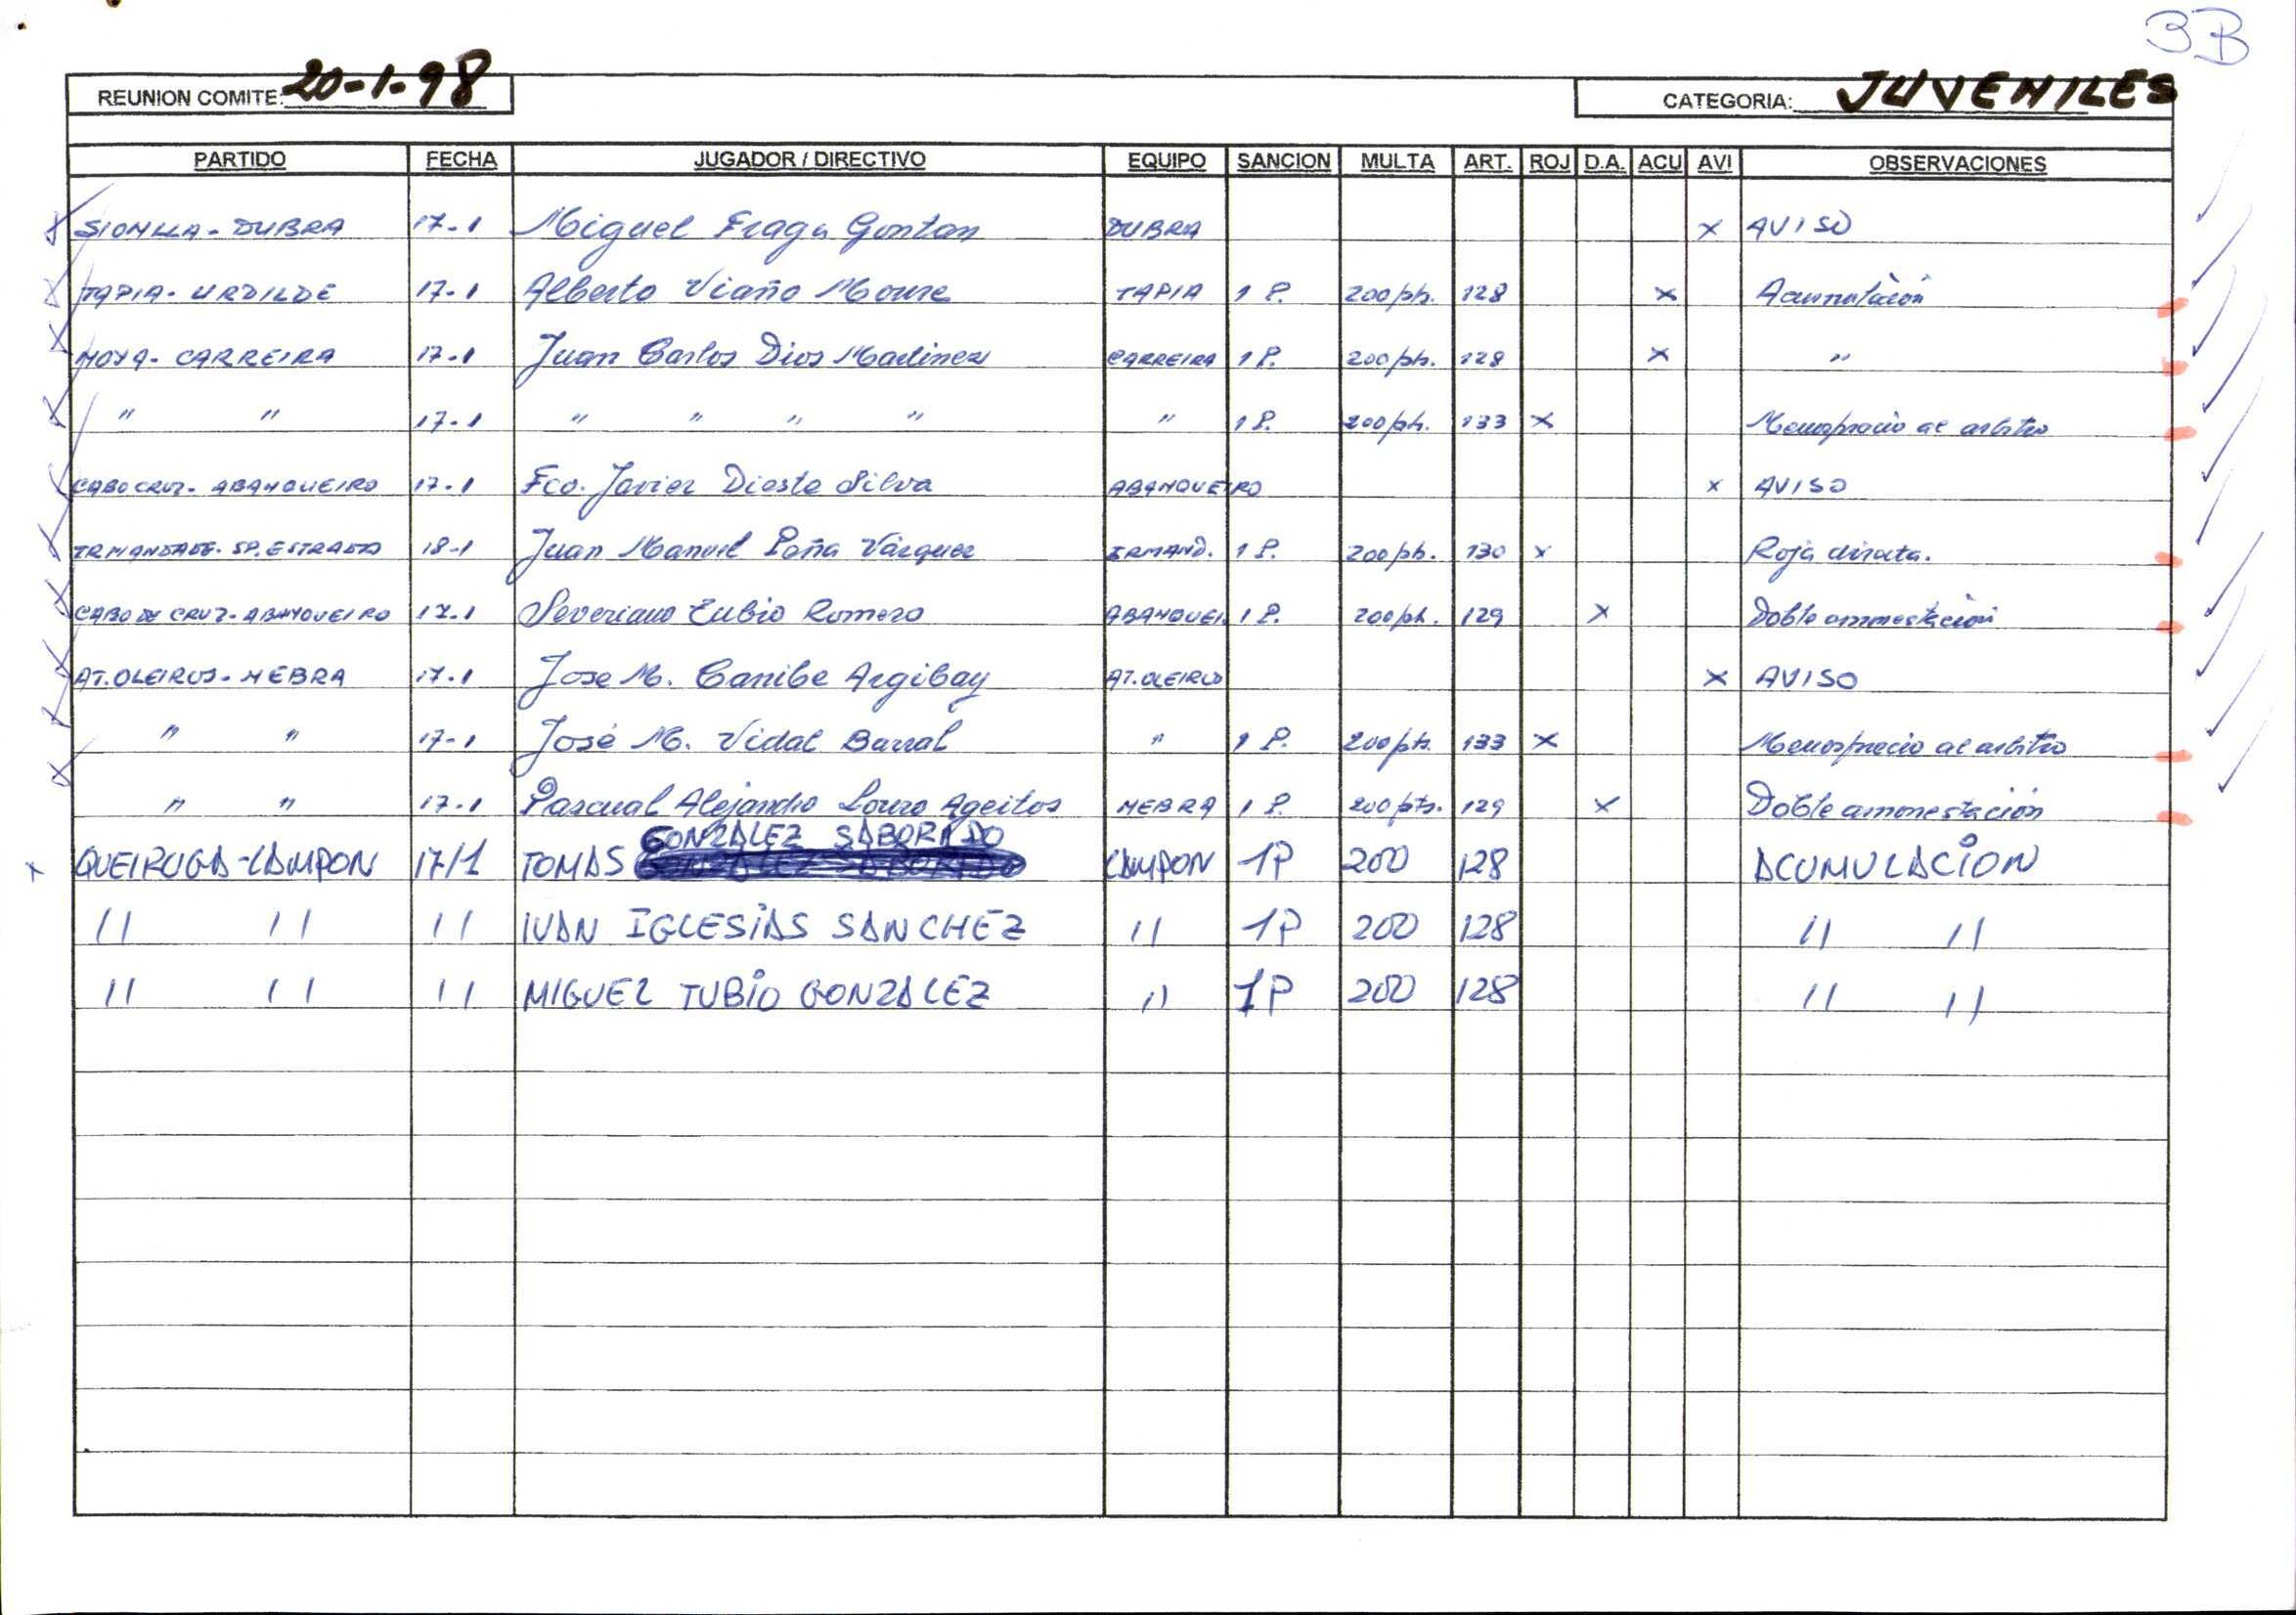 3B
REUNION COMITE: 20-1-98 CATEGORIA: JUVENILES
PARTIDO FECHA JUGADOR / DIRECTIVO EQUIPO SANCION MULTA ART. ROJ D.A. ACU AVI OBSERVACIONES
SIONLLA - DUBRA 17-1 Miguel Fraga Gontan DUBRA x AVISO
TAPIA - URDILDE 17-1 Alberto Viaño Moure TAPIA 1 P. 200 pts. 128 x Acumulación
NOYA - CARREIRA 17-1 Juan Carlos Dios Martinez CARREIRA 1 P. 200 pts. 128 x "
" " 17-1 " " " " " 1 P. 200 pts. 133 x Menosprecio al arbitro
CABO CRUZ - ABANQUEIRO 17-1 Fco. Javier Dieste Silva ABANQUEIRO x AVISO
IRMANDADE - SP. ESTRADA 18-1 Juan Manuel Paña Vázquez IRMAND. 1 P. 200 pts. 130 x Roja directa.
CABO DE CRUZ - ABANQUEIRO 17-1 Severiano Tubio Romero ABANQUEI. 1 P. 200 pts. 129 x Doble amonestación
AT. OLEIROS - NEBRA 17-1 Jose M. Caribe Argibay AT. OLEIROS x AVISO
" " 17-1 José M. Vidal Barral " 1 P. 200 pts. 133 x Menosprecio al arbitro
" " 17-1 Pascual Alejandro Louro Ageitos NEBRA 1 P. 200 pts. 129 x Doble amonestación
QUEIRUGA - CAMPON 17/1 TOMAS GONZALEZ SABORIDO CAMPON 1P 200 128 ACUMULACION
" " " IVAN IGLESIAS SANCHEZ " 1P 200 128 " "
" " " MIGUEL TUBIO GONZALEZ " 1P 200 128 " "